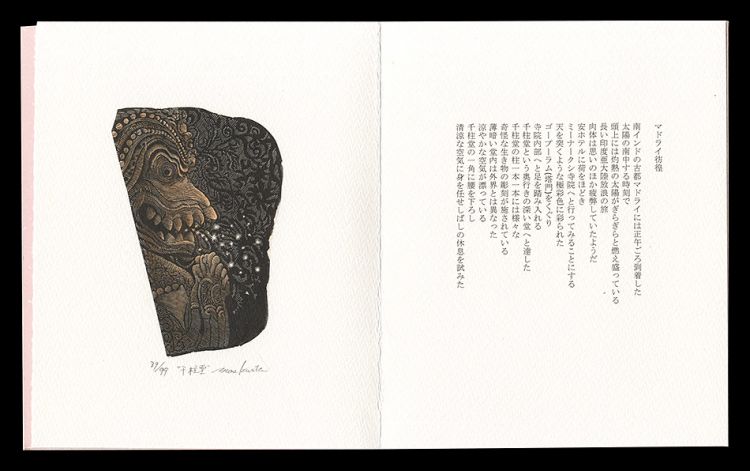 マドライ彷徨
南インドの古都マドライには正午ごろ到着した
太陽の南中する時刻で
頭上には灼熱の太陽がぎらぎらと燃え盛っている
長い印度亜大陸放浪の旅
肉体は思いのほか疲弊していたようだ
安ホテルに荷をほどき
ミーナークシ寺院へと行ってみることにする
天を突くような極彩色に彩られた
ゴープーラム(塔門)をくぐり
寺院内部へと足を踏み入れる
千柱堂という奥行きの深い堂へと達した
千柱堂の柱一本一本には様々な
奇怪な生き物の彫刻が施されている
薄暗い堂内は外界とは異なった
涼やかな空気が漂っている
千柱堂の一角に腰を下ろし
清涼な空気に身を任せしばしの休息を試みた
39/99 "千柱堂"